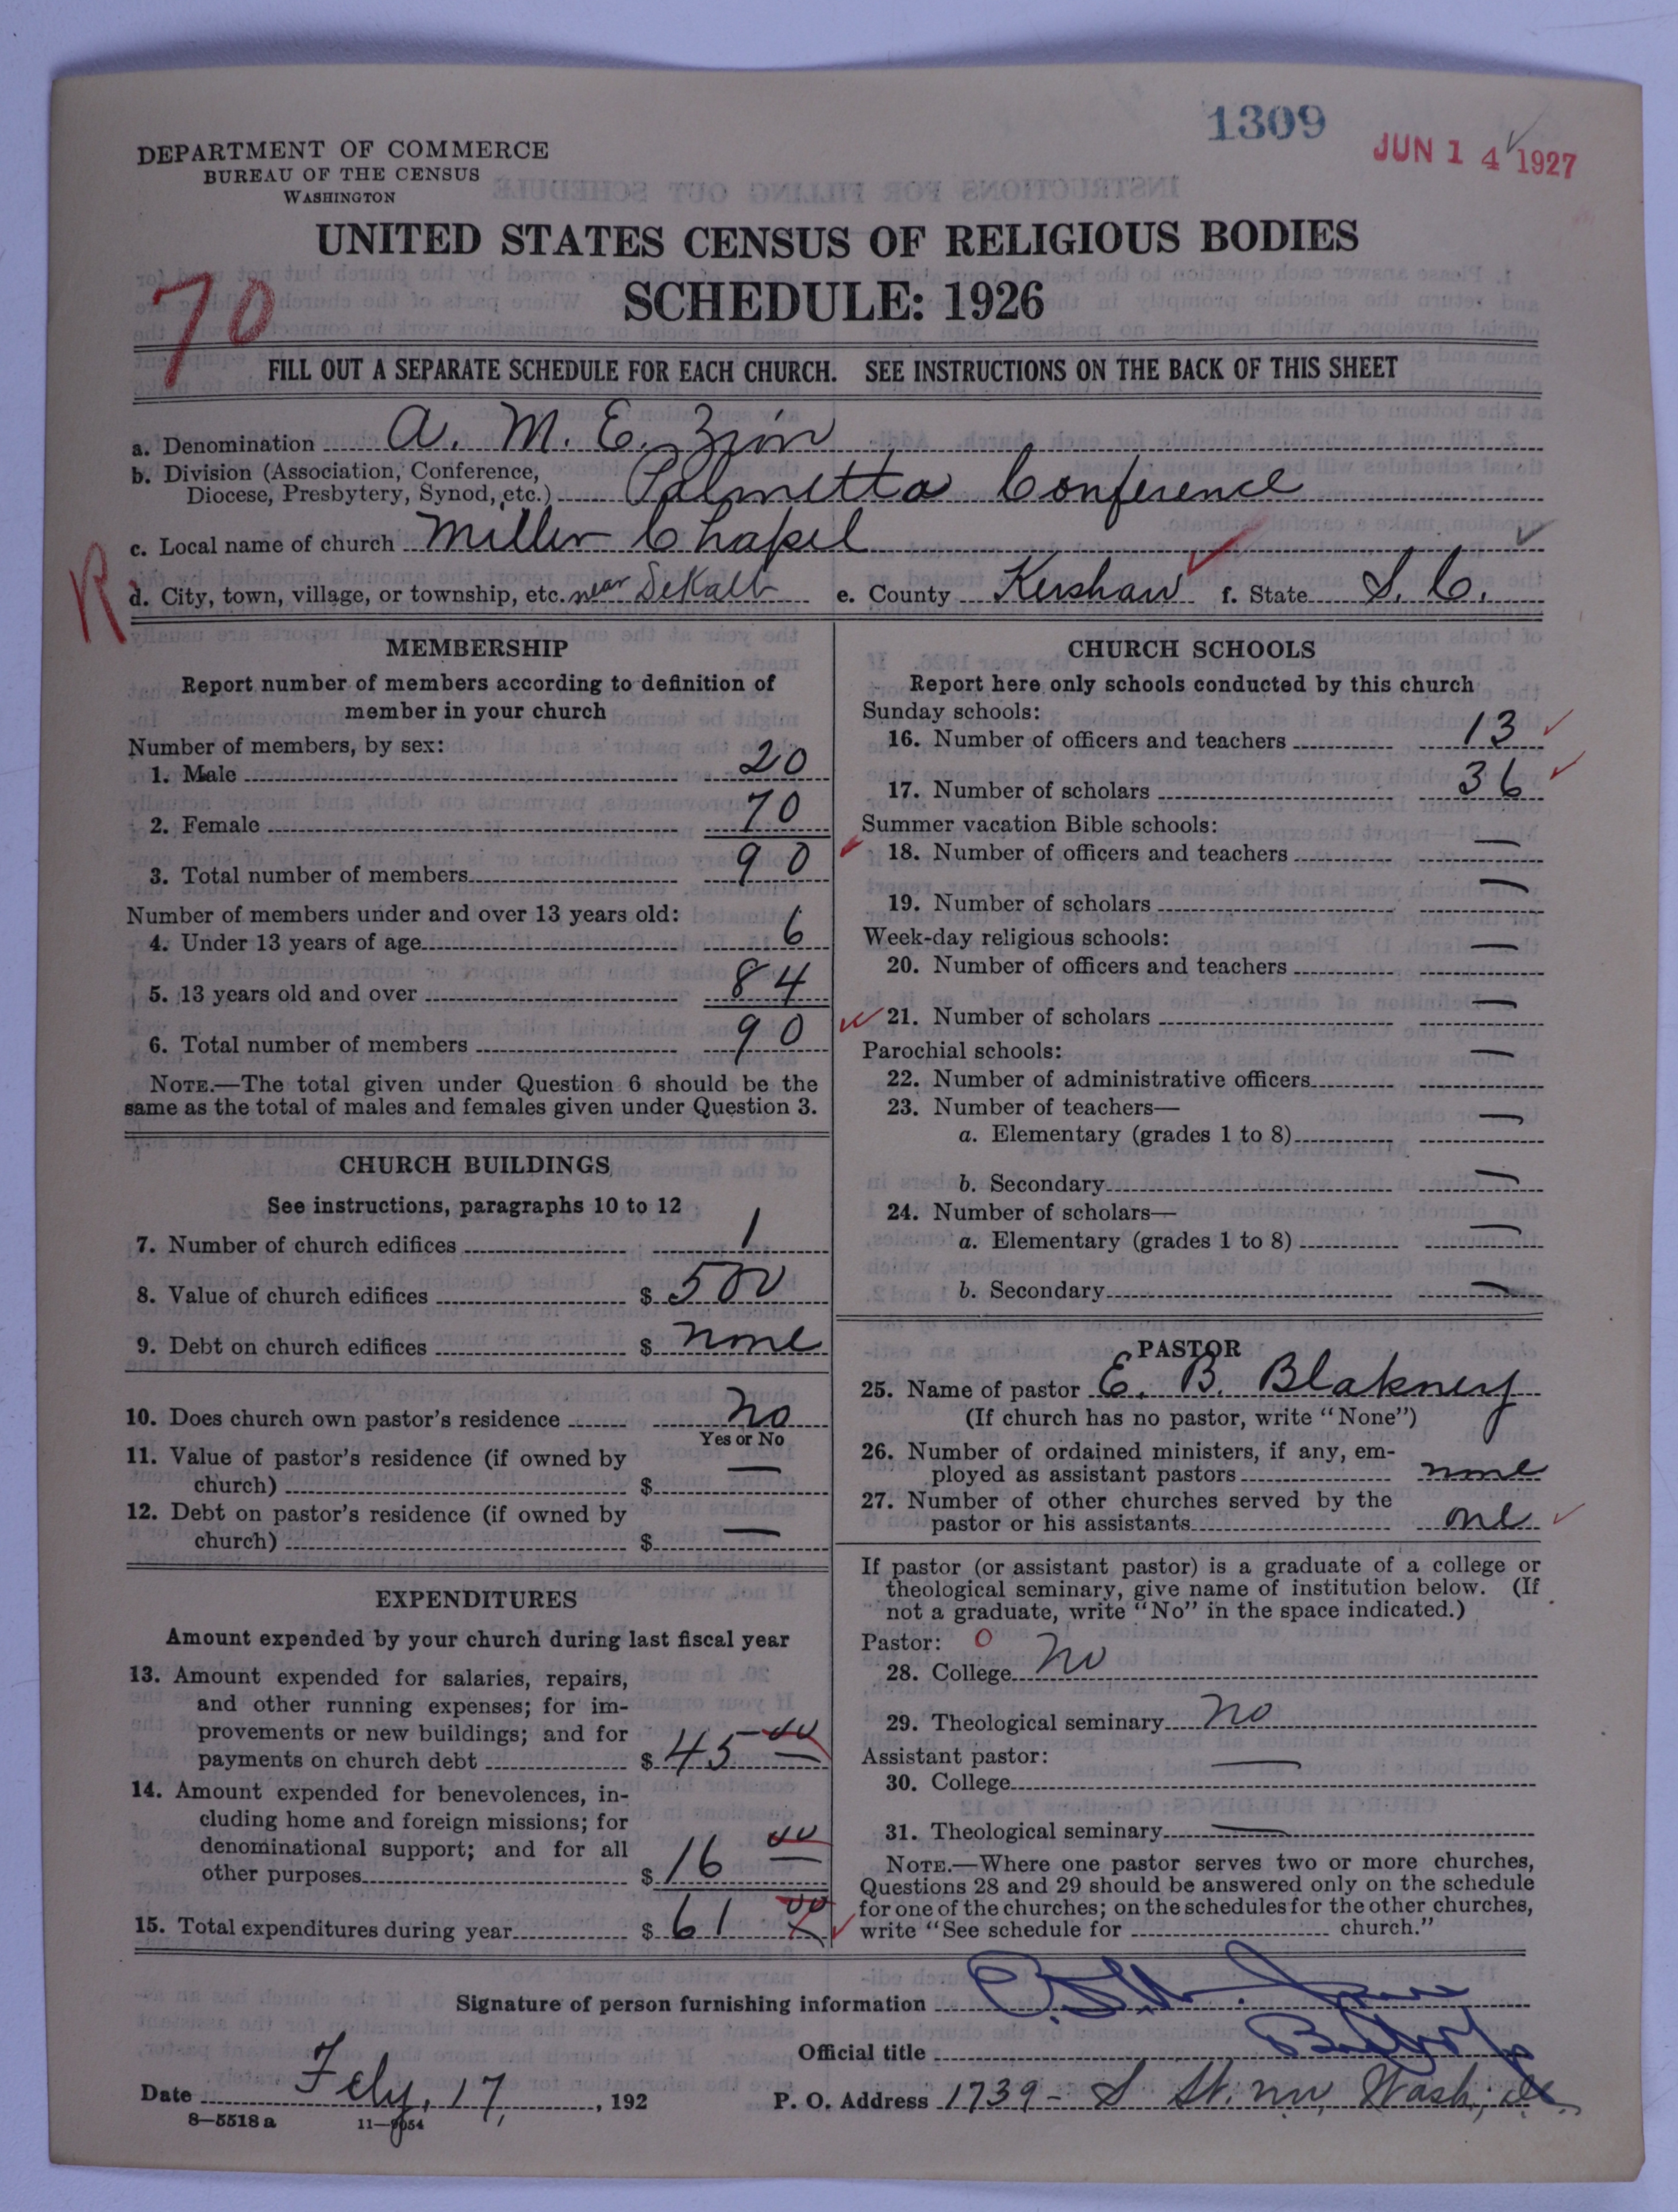 1309
JUN 14 1927
DEPARTMENT OF COMMERCE
BUREAU OF THE CENSUS
WASHINGTON
UNITED STATES CENSUS OF RELIGIOUS BODIES
SCHEDULE: 1926
70
FILL OUT A SEPARATE SCHEDULE FOR EACH CHURCH. SEE INSTRUCTIONS ON THE BACK OF THIS SHEET
a. Denomination A. M. E. Zion
b. Division (Association, Conference,
Diocese, Presbytery, Synod, etc.) Palmetto Conference
c. Local name of church Miller Chapel
R
d. City, town, village, or township, etc. near DeKalb e. County Kershaw f. State S. C.
MEMBERSHIP
Report number of members according to definition of
member in your church
Number of members, by sex:
1. Male 20
2. Female 70
3. Total number of members 90
Number of members under and over 13 years old:
4. Under 13 years of age 6
5. 13 years old and over 84
6. Total number of members 90
NOTE.—The total given under Question 6 should be the
same as the total of males and females given under Question 3.
CHURCH BUILDINGS
See instructions, paragraphs 10 to 12
7. Number of church edifices 1
8. Value of church edifices $ 500
9. Debt on church edifices $ none
10. Does church own pastor's residence no
Yes or No
11. Value of pastor's residence (if owned by
church) $ —
12. Debt on pastor's residence (if owned by
church) $ —
EXPENDITURES
Amount expended by your church during last fiscal year
13. Amount expended for salaries, repairs,
and other running expenses; for im-
provements or new buildings; and for
payments on church debt $ 45 00
14. Amount expended for benevolences, in-
cluding home and foreign missions; for
denominational support; and for all
other purposes $ 16 00
15. Total expenditures during year $ 61 00
CHURCH SCHOOLS
Report here only schools conducted by this church
Sunday schools:
16. Number of officers and teachers 13
17. Number of scholars 36
Summer vacation Bible schools:
18. Number of officers and teachers —
19. Number of scholars —
Week-day religious schools:
20. Number of officers and teachers —
21. Number of scholars —
Parochial schools:
22. Number of administrative officers —
23. Number of teachers—
a. Elementary (grades 1 to 8) —
b. Secondary —
24. Number of scholars—
a. Elementary (grades 1 to 8) —
b. Secondary —
PASTOR
25. Name of pastor E. B. Blakney
(If church has no pastor, write "None")
26. Number of ordained ministers, if any, em-
ployed as assistant pastors none
27. Number of other churches served by the
pastor or his assistants one
If pastor (or assistant pastor) is a graduate of a college or
theological seminary, give name of institution below. (If
not a graduate, write "No" in the space indicated.)
Pastor: 0
28. College no
29. Theological seminary no
Assistant pastor:
30. College —
31. Theological seminary —
NOTE.—Where one pastor serves two or more churches,
Questions 28 and 29 should be answered only on the schedule
for one of the churches; on the schedules for the other churches,
write "See schedule for church."
Signature of person furnishing information
Official title Bishop
Date Feby. 17, , 192 P. O. Address 1739 - S St. nw, Wash., D.C.
8—5518a 11—9054